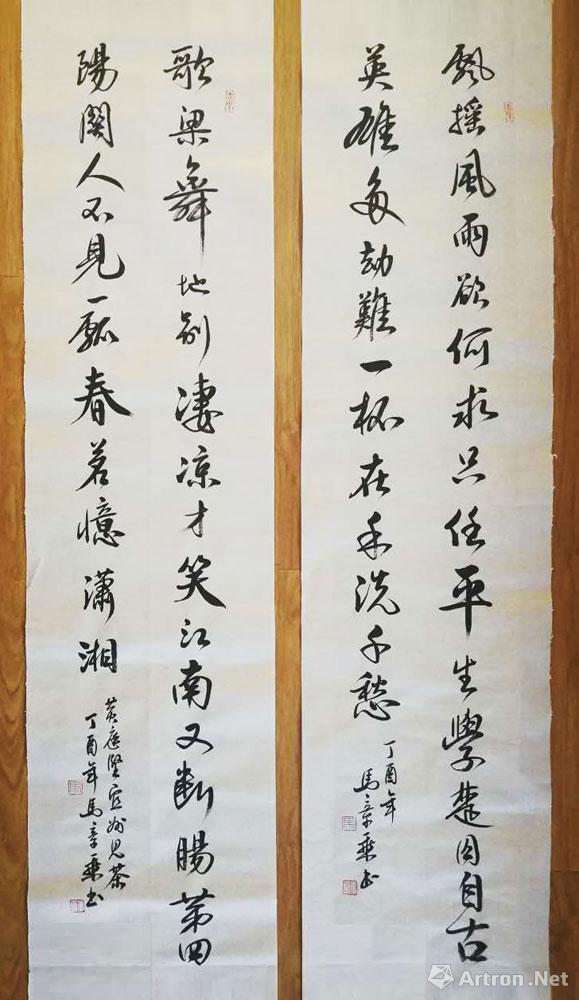 飄搖風雨欲何求只任平生學楚囚自古
英雄多劫難一杯在手洗千愁
丁酉年
馬章乘书
歌梁舞地别凄凉才笑江南又断腸第四
陽關人不見一瓢春茗憶瀟湘
黄庭堅宜州見茶
丁酉年馬章乘书
Artron.Net